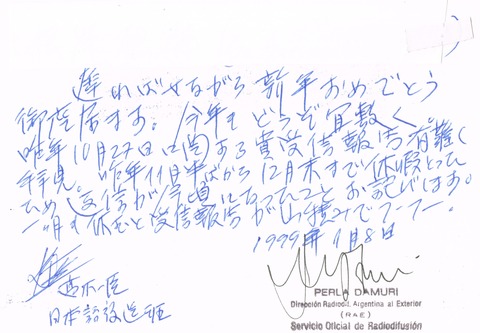 遅ればせながら新年おめでとう
御座居ます。今年もどうぞ宜敷く
昨年10月27日に関する貴受信報告有難く
拝見。昨年11月半ばから12月末まで休暇とった
ため、返信が今頃になったことお詫びします。
一ヶ月も休むと受信報告が山積みでフーフー。
1999年1月8日
日本語放送班
PERLA DAMURI
Dirección Radiodif. Argentina al Exterior
(RAE)
Servicio Oficial de Radiodifusión